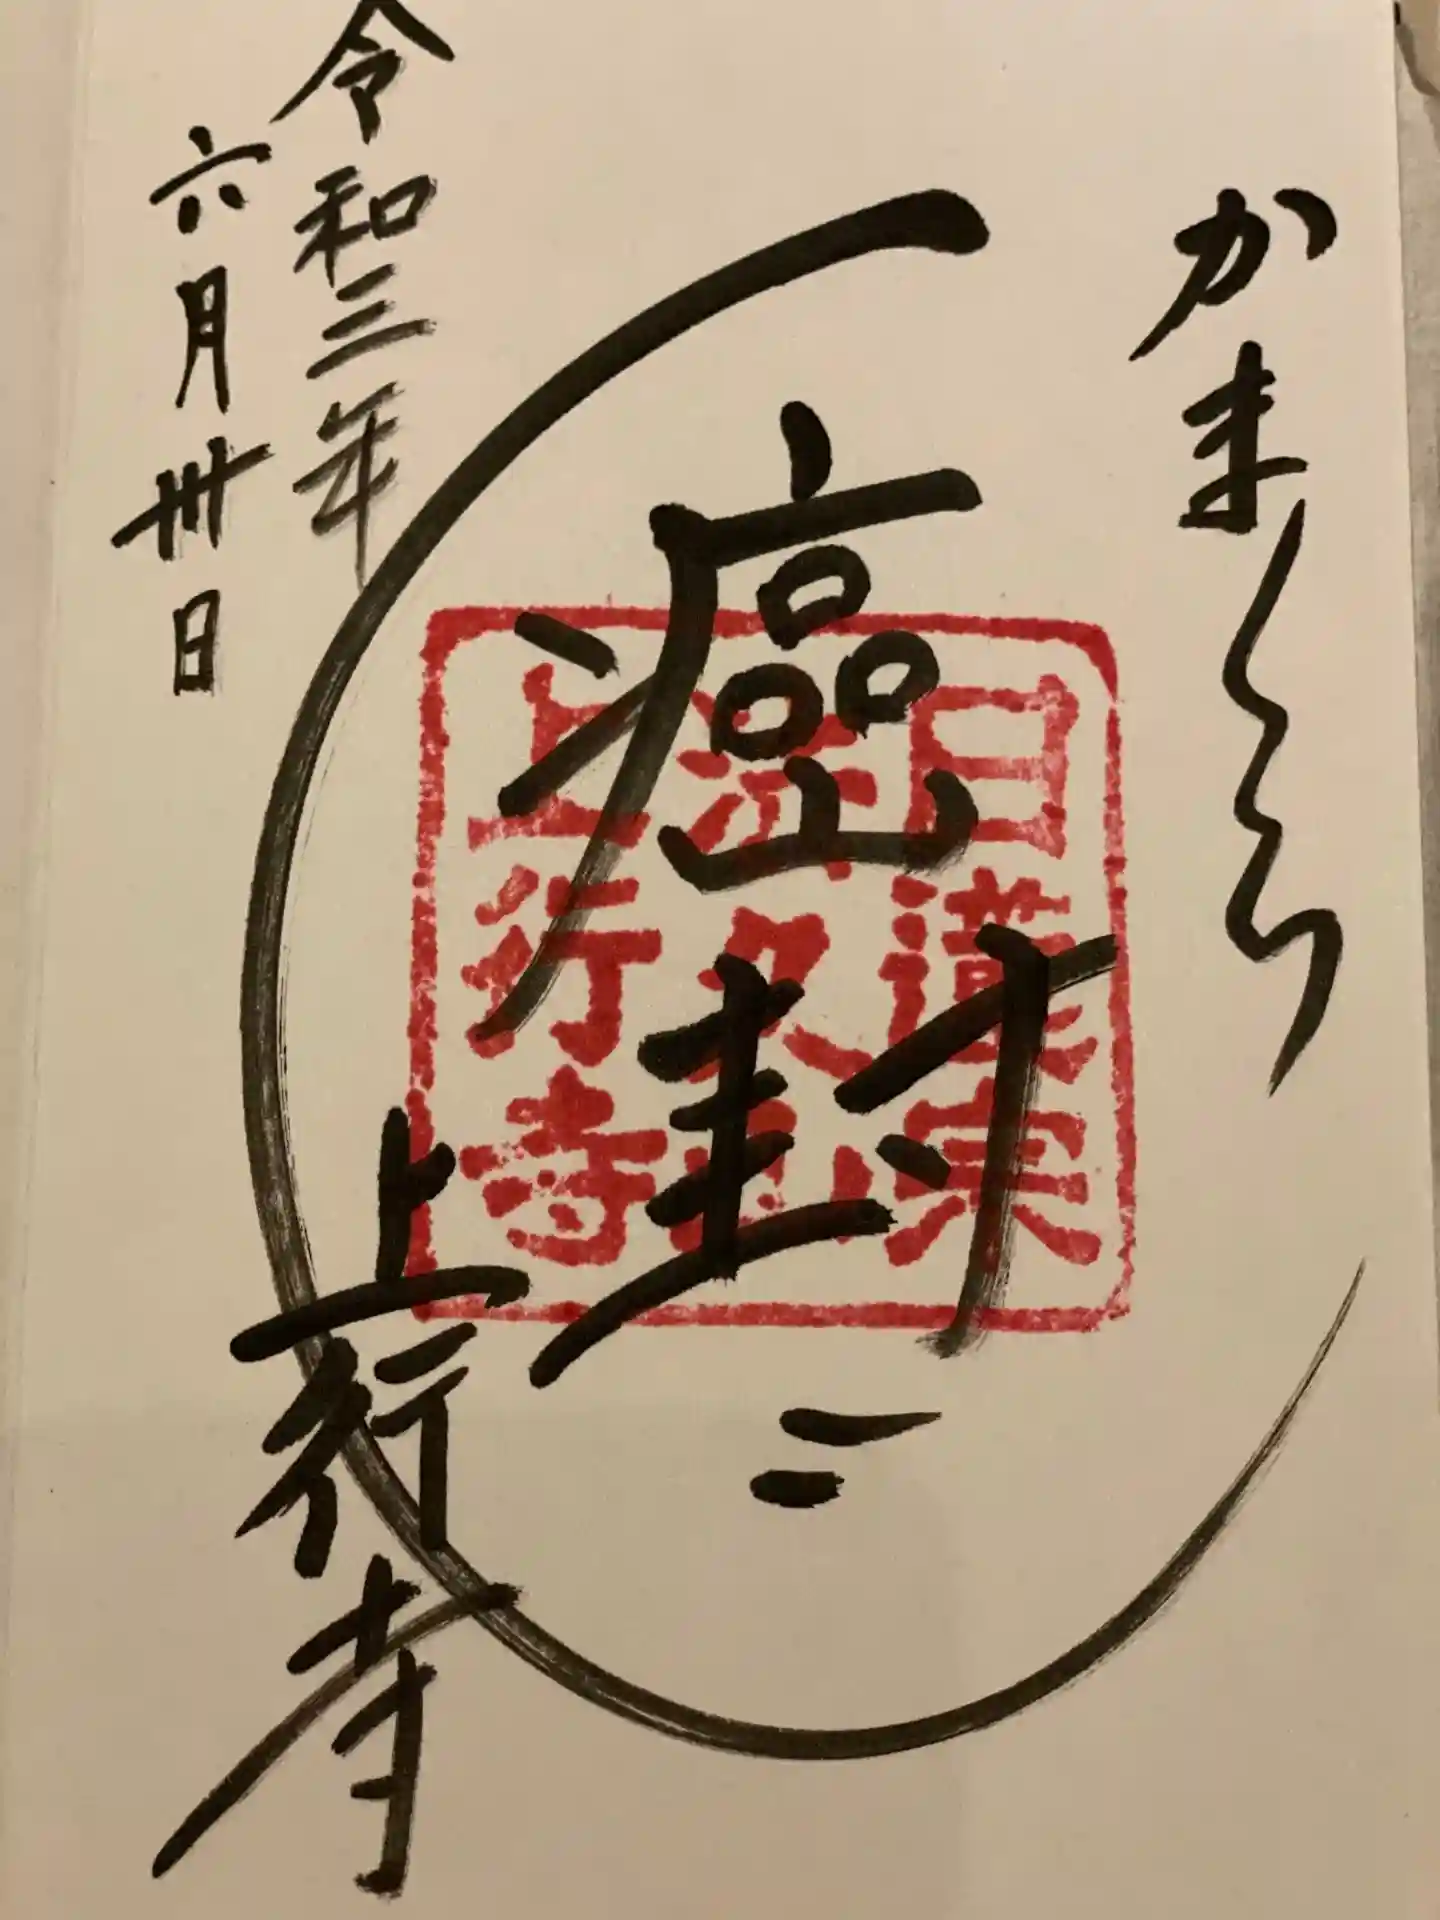 かまくら
癌封
日蓮宗
法久山
上行寺
令和三年
六月卅日
上行寺